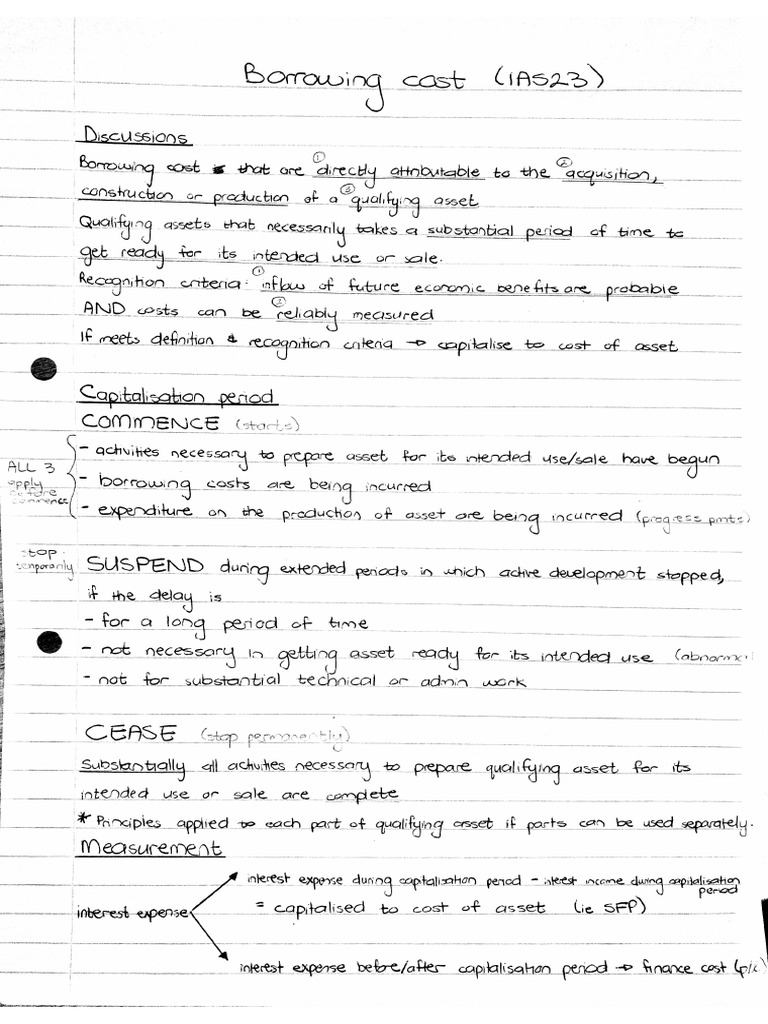 Borrowing cost (IAS23)
Discussions
Borrowing cost that are ① directly attributable to the ② acquisition,
construction or production of a ③ qualifying asset
Qualifying assets that necessarily takes a substantial period of time to
get ready for its intended use or sale.
Recognition criteria: ① inflow of future economic benefits are probable
AND costs can be ② reliably measured
If meets definition & recognition criteria → capitalise to cost of asset
Capitalisation period
COMMENCE (starts)
- activities necessary to prepare asset for its intended use/sale have begun
ALL 3
apply
before
commence
- borrowing costs are being incurred
- expenditure on the production of asset are being incurred (progress pmts)
stop
temporarily
SUSPEND during extended periods in which active development stopped,
if the delay is
- for a long period of time
- not necessary in getting asset ready for its intended use (abnormal
- not for substantial technical or admin work
CEASE (stop permanently)
Substantially all activities necessary to prepare qualifying asset for its
intended use or sale are complete
* Principles applied to each part of qualifying asset if parts can be used separately.
Measurement
interest expense during capitalisation period - interest income during capitalisation
period
= capitalised to cost of asset (ie SFP)
interest expense
interest expense before/after capitalisation period → finance cost (p/l)